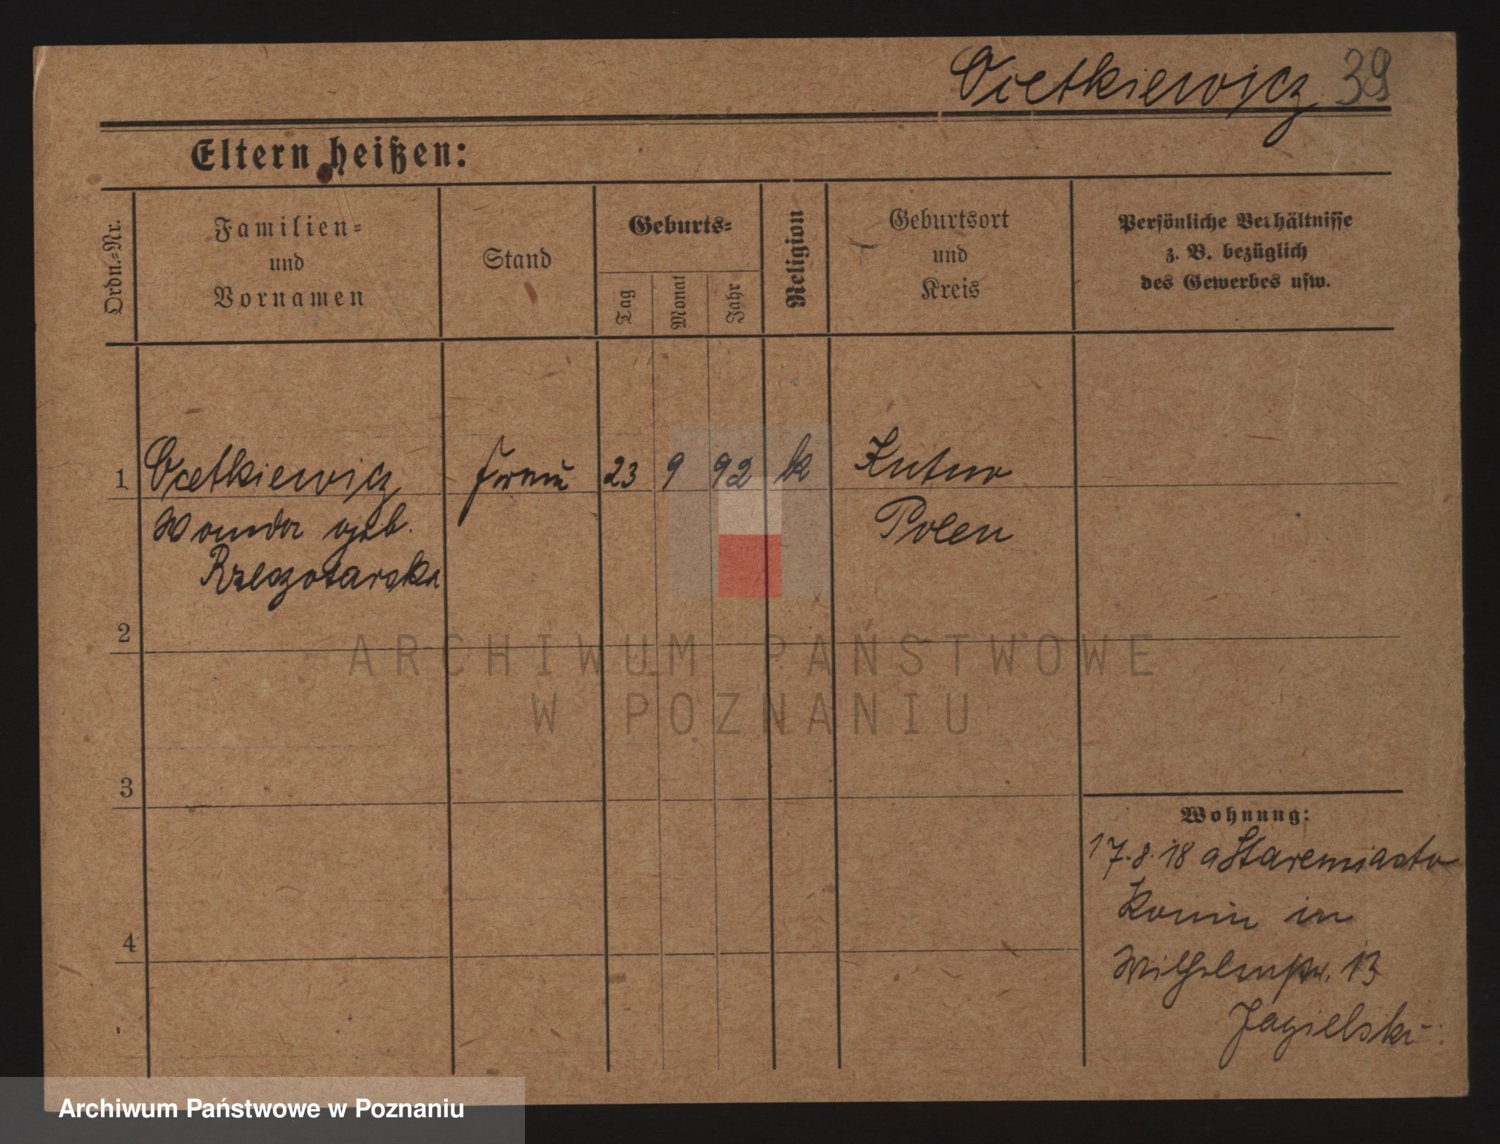 Ocetkiewicz 39
Eltern heißen:
Ordn.-Nr.
Familien-
und
Vornamen
Stand
Geburts-
Tag
Monat
Jahr
Religion
Geburtsort
und
Kreis
Persönliche Verhältnisse
z. B. bezüglich
des Gewerbes usw.
1 Ocetkiewicz Frau 23 9 92 k Kutno
Wanda geb. Polen
Rzeszotarska
2
3
4
Wohnung:
17.8.18 a Staremiasto
Konin in
Wilhelmpl. 13
Jagielski
ARCHIWUM PAŃSTWOWE
W POZNANIU
Archiwum Państwowe w Poznaniu